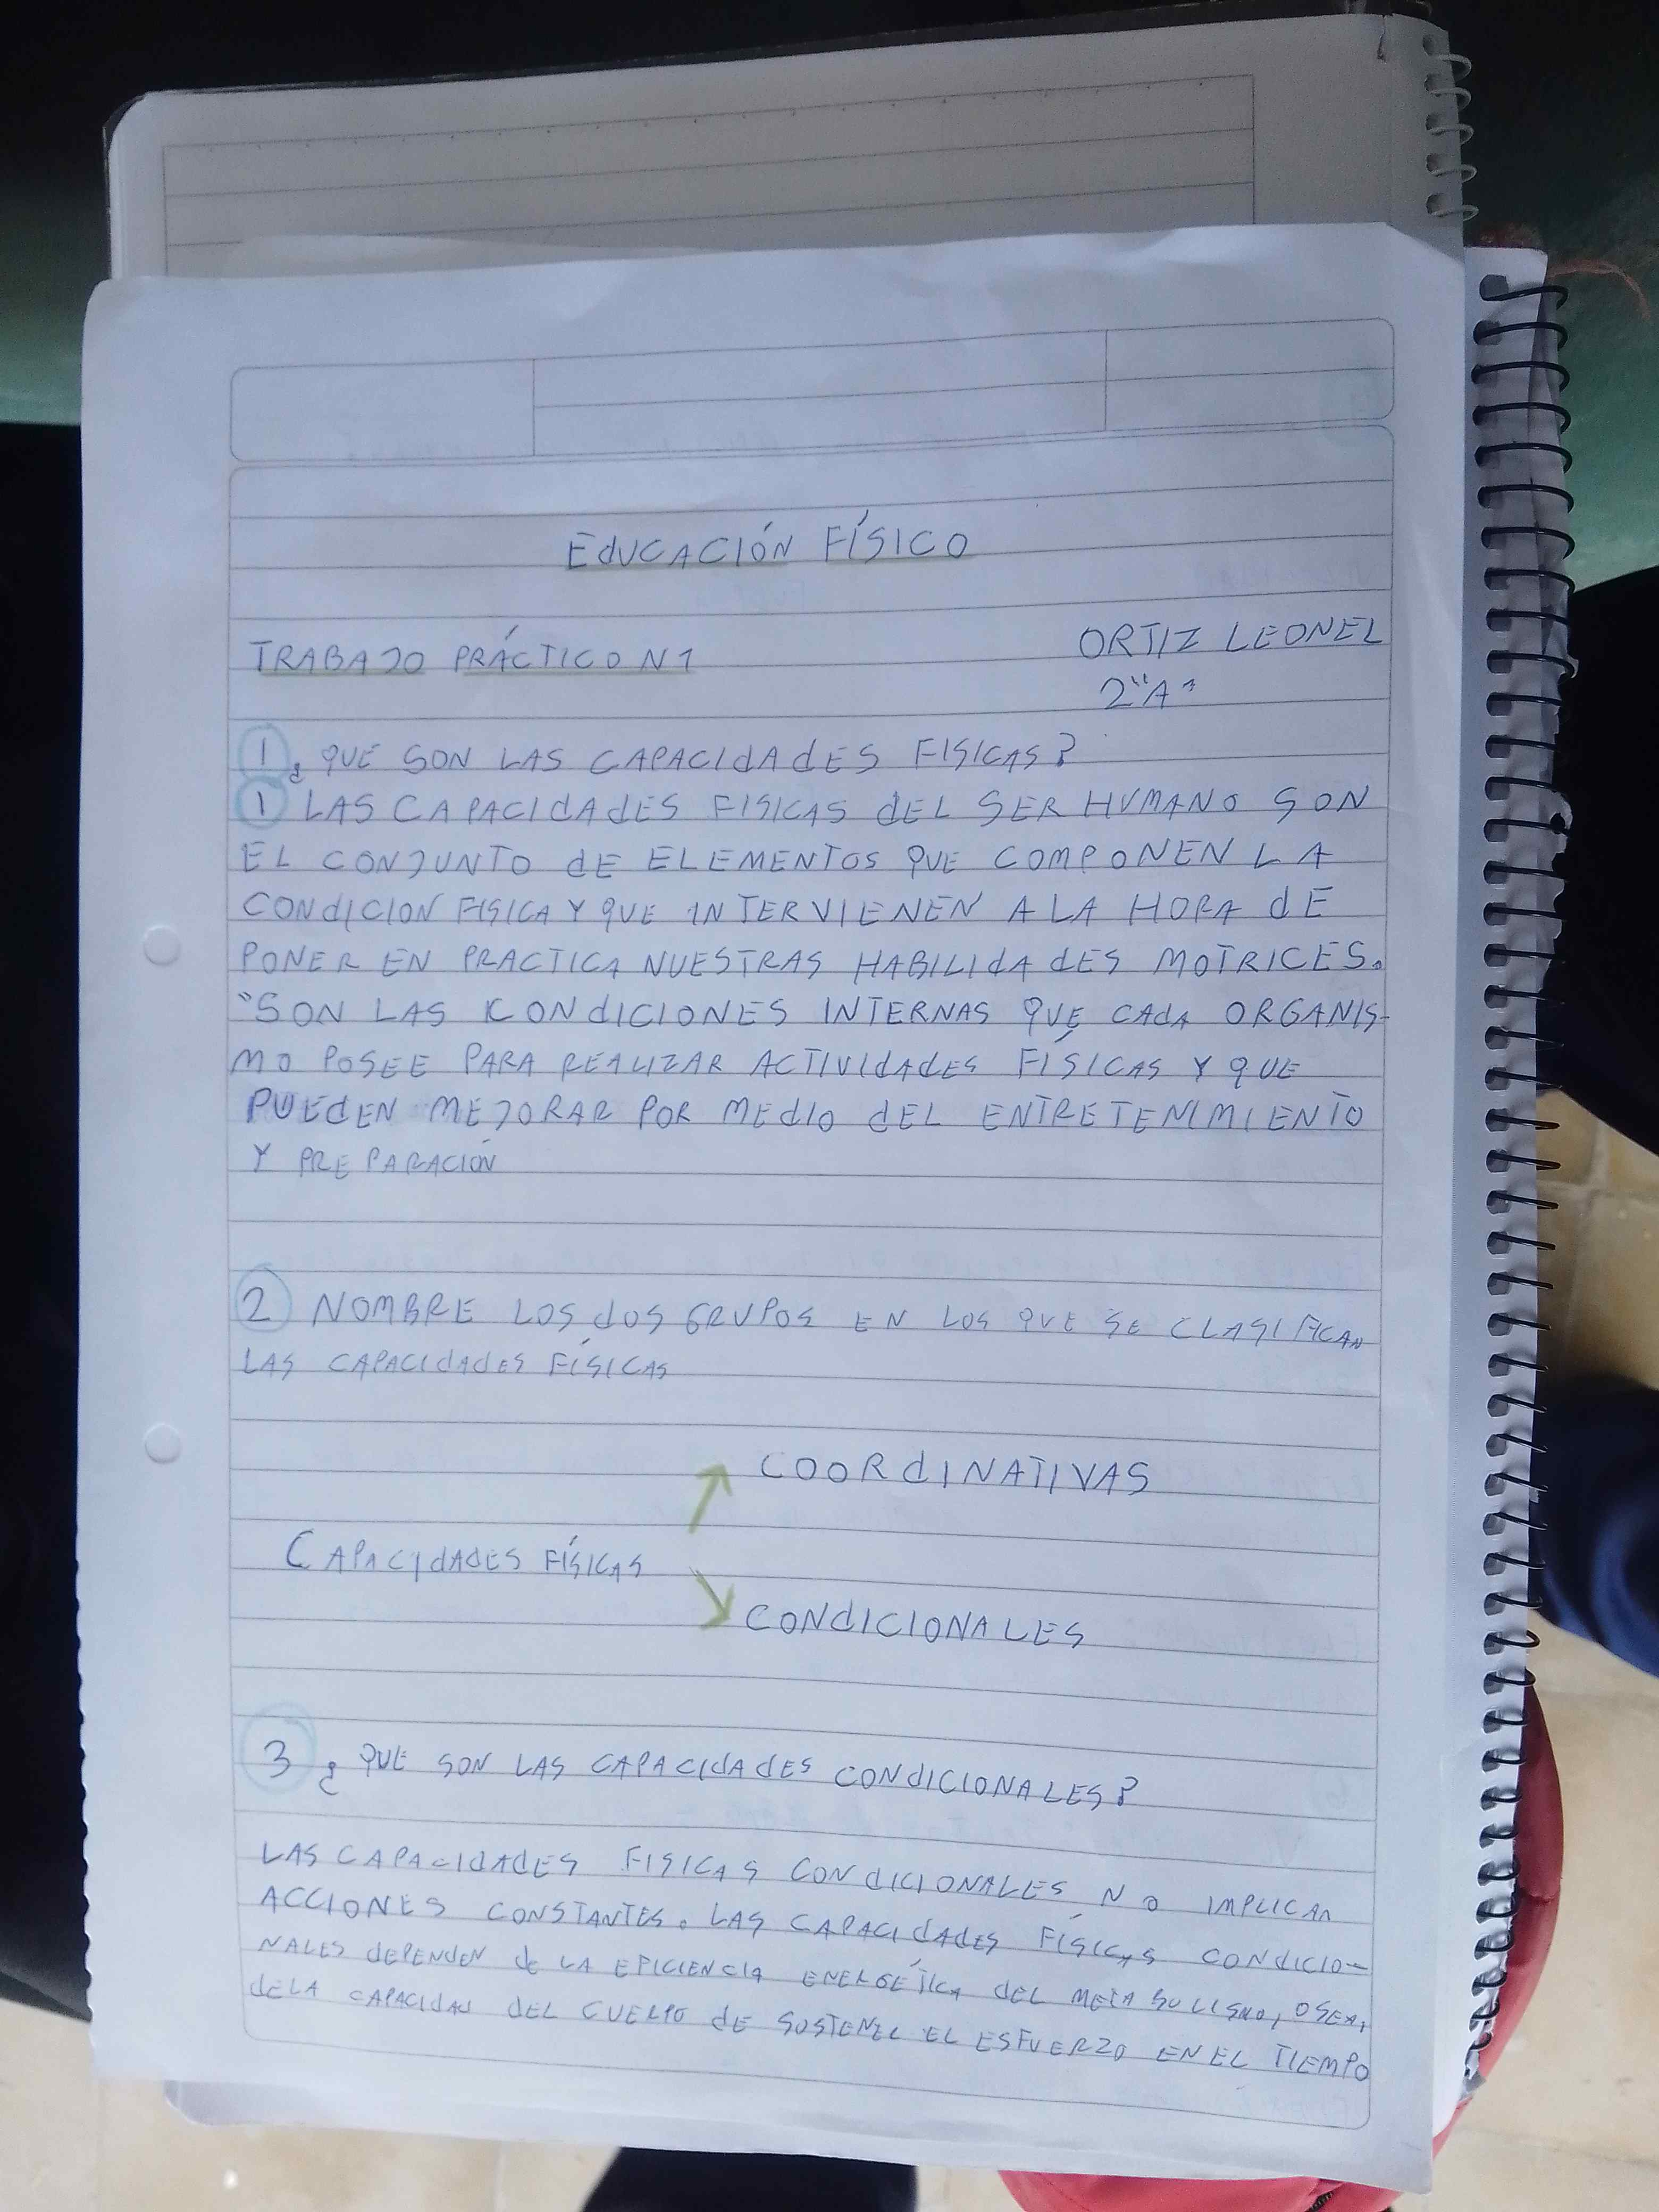 EDUCACIÓN FÍSICO
TRABAJO PRÁCTICO N1
ORTIZ LEONEL
2"A"
1 ¿QUE SON LAS CAPACIDADES FISICAS?
1 LAS CAPACIDADES FISICAS DEL SER HUMANO SON
EL CONJUNTO DE ELEMENTOS QUE COMPONEN LA
CONDICION FISICA Y QUE INTERVIENEN A LA HORA DE
PONER EN PRACTICA NUESTRAS HABILIDADES MOTRICES.
"SON LAS CONDICIONES INTERNAS QUE CADA ORGANIS-
MO POSEE PARA REALIZAR ACTIVIDADES FÍSICAS Y QUE
PUEDEN MEJORAR POR MEDIO DEL ENTRETENIMIENTO
Y PREPARACIÓN
2 NOMBRE LOS DOS GRUPOS EN LOS QUE SE CLASIFICAN
LAS CAPACIDADES FÍSICAS
COORDINATIVAS
CAPACIDADES FÍSICAS
CONDICIONALES
3 ¿QUE SON LAS CAPACIDADES CONDICIONALES?
LAS CAPACIDADES FISICAS CONDICIONALES NO IMPLICAN
ACCIONES CONSTANTES. LAS CAPACIDADES FÍSICAS CONDICIO-
NALES DEPENDEN DE LA EFICIENCIA ENERGÉTICA DEL METABOLISMO, OSEA,
DE LA CAPACIDAD DEL CUERPO DE SOSTENER EL ESFUERZO EN EL TIEMPO